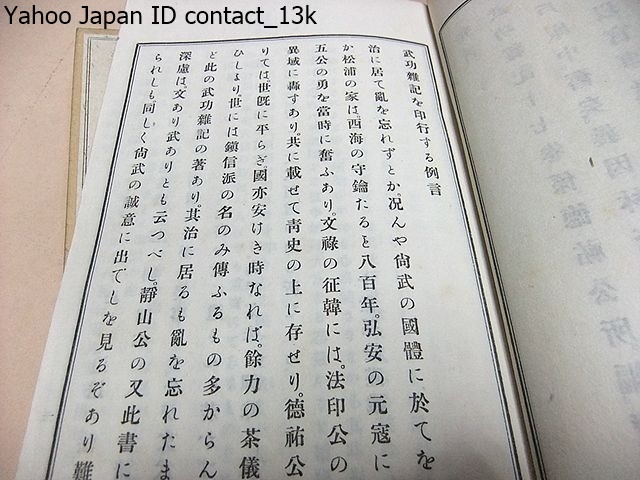 Yahoo Japan ID contact_13k
武功雜記を印行する例言
治に居て亂を忘れずとか。况んや尙武の國體に於てを
か松浦の家は。西海の守鑰たると八百年。弘安の元寇に
五公の勇を當時に奮ふあり。文祿の征韓には。法印公の
異域に轟すあり。共に載せて靑史の上に存せり。德祐公
りては。世旣に平らぎ國亦安けき時なれば。餘力の茶儀
ひしより。世には鎭信派の名のみ傳ふるもの多からん
ど此の武功雜記の著あり。其治に居るも亂を忘れたま
深慮は。文あり武ありとも云つべし。靜山公の又此書に
られしも同しく尙武の誠意に出でしを見るぞあり難